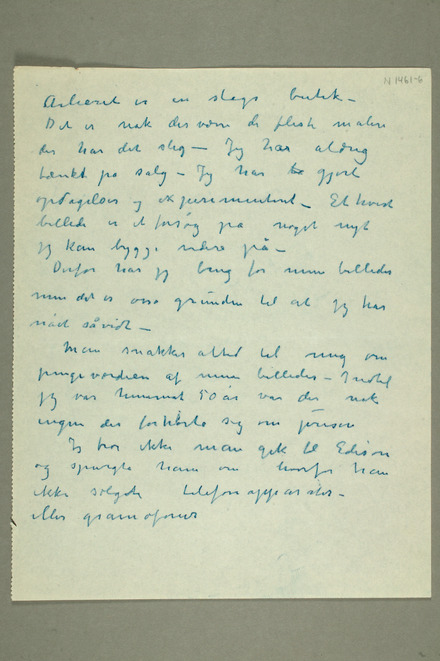 N 1461-6
Atelieret er en slags butik -
Det er nok desværre de flestes malere
der har det slig - Jeg har aldrig
tænkt på salg - Jeg har gjort
opdagelser og experimenteret - Et hvert
billede er et forsøg på noget nyt
jeg kan bygge videre på -
Derfor har jeg brug for mine billeder
men det er også grunden til at jeg har
nået så vidt -
Man snakker altid til mig om
pengeværdien af mine billeder - Indtil
jeg var hennimot 50 år var der nok
ingen der forhørte sig om prisen
Jeg tror ikke man gik til Edison
og spurgte ham om hvorfor han
ikke solgte telefonapparater -
eller gramofoner